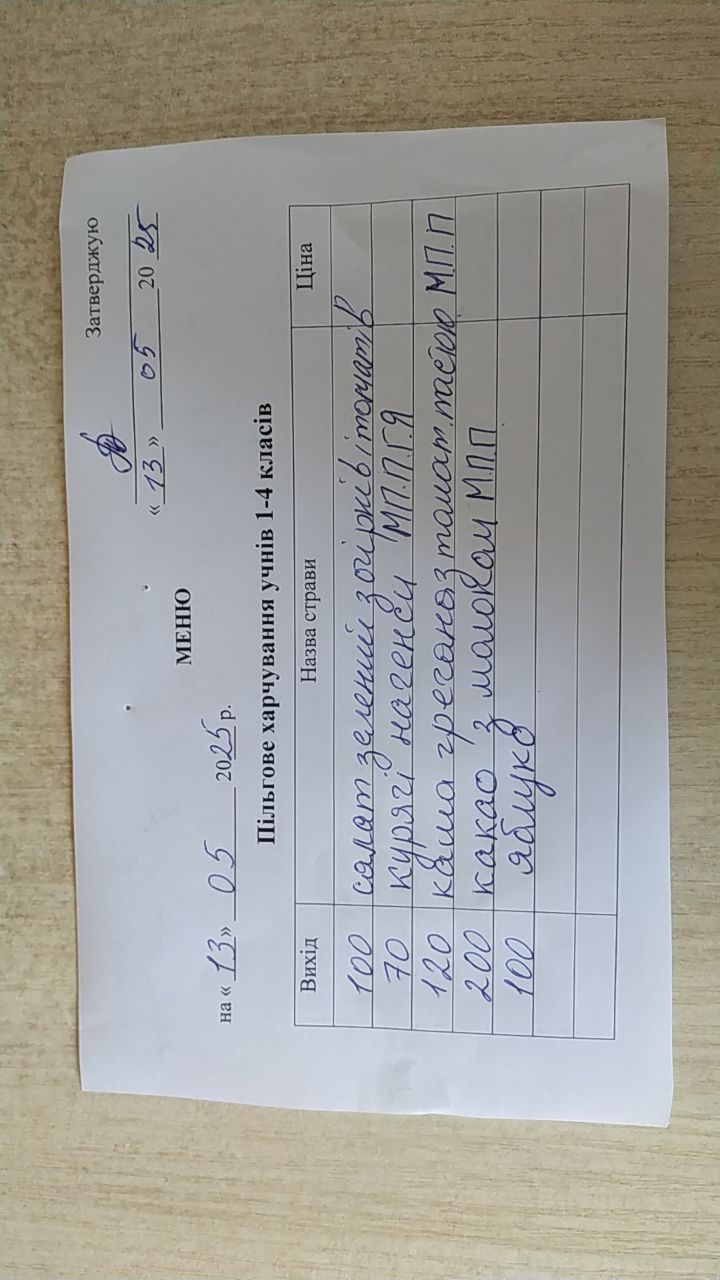 Затверджую
« 13 » 05 20 25
МЕНЮ
на « 13 » 05 2025 р.
Пільгове харчування учнів 1-4 класів
Вихід Назва страви Ціна
100 салат зелений з огірків і томатів
70 курячі нагенси МП.П.Г.Я
120 каша гречана з томат. пастою М.П.П
200 какао з молоком М.П.П.
100 яблуко